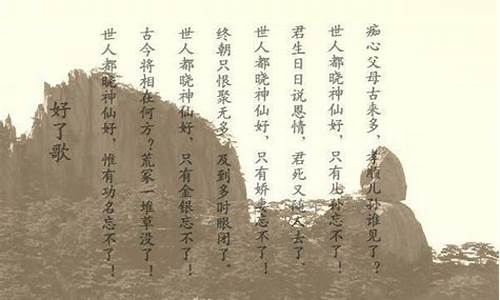 好了歌
世人都晓神仙好，惟有功名忘不了！
古今将相在何方？荒冢一堆草没了！
世人都晓神仙好，只有金银忘不了！
终朝只恨聚无多，及到多时眼闭了。
世人都晓神仙好，只有娇妻忘不了！
君生日日说恩情，君死又随人去了。
世人都晓神仙好，只有儿孙忘不了！
痴心父母古来多，孝顺儿孙谁见了？